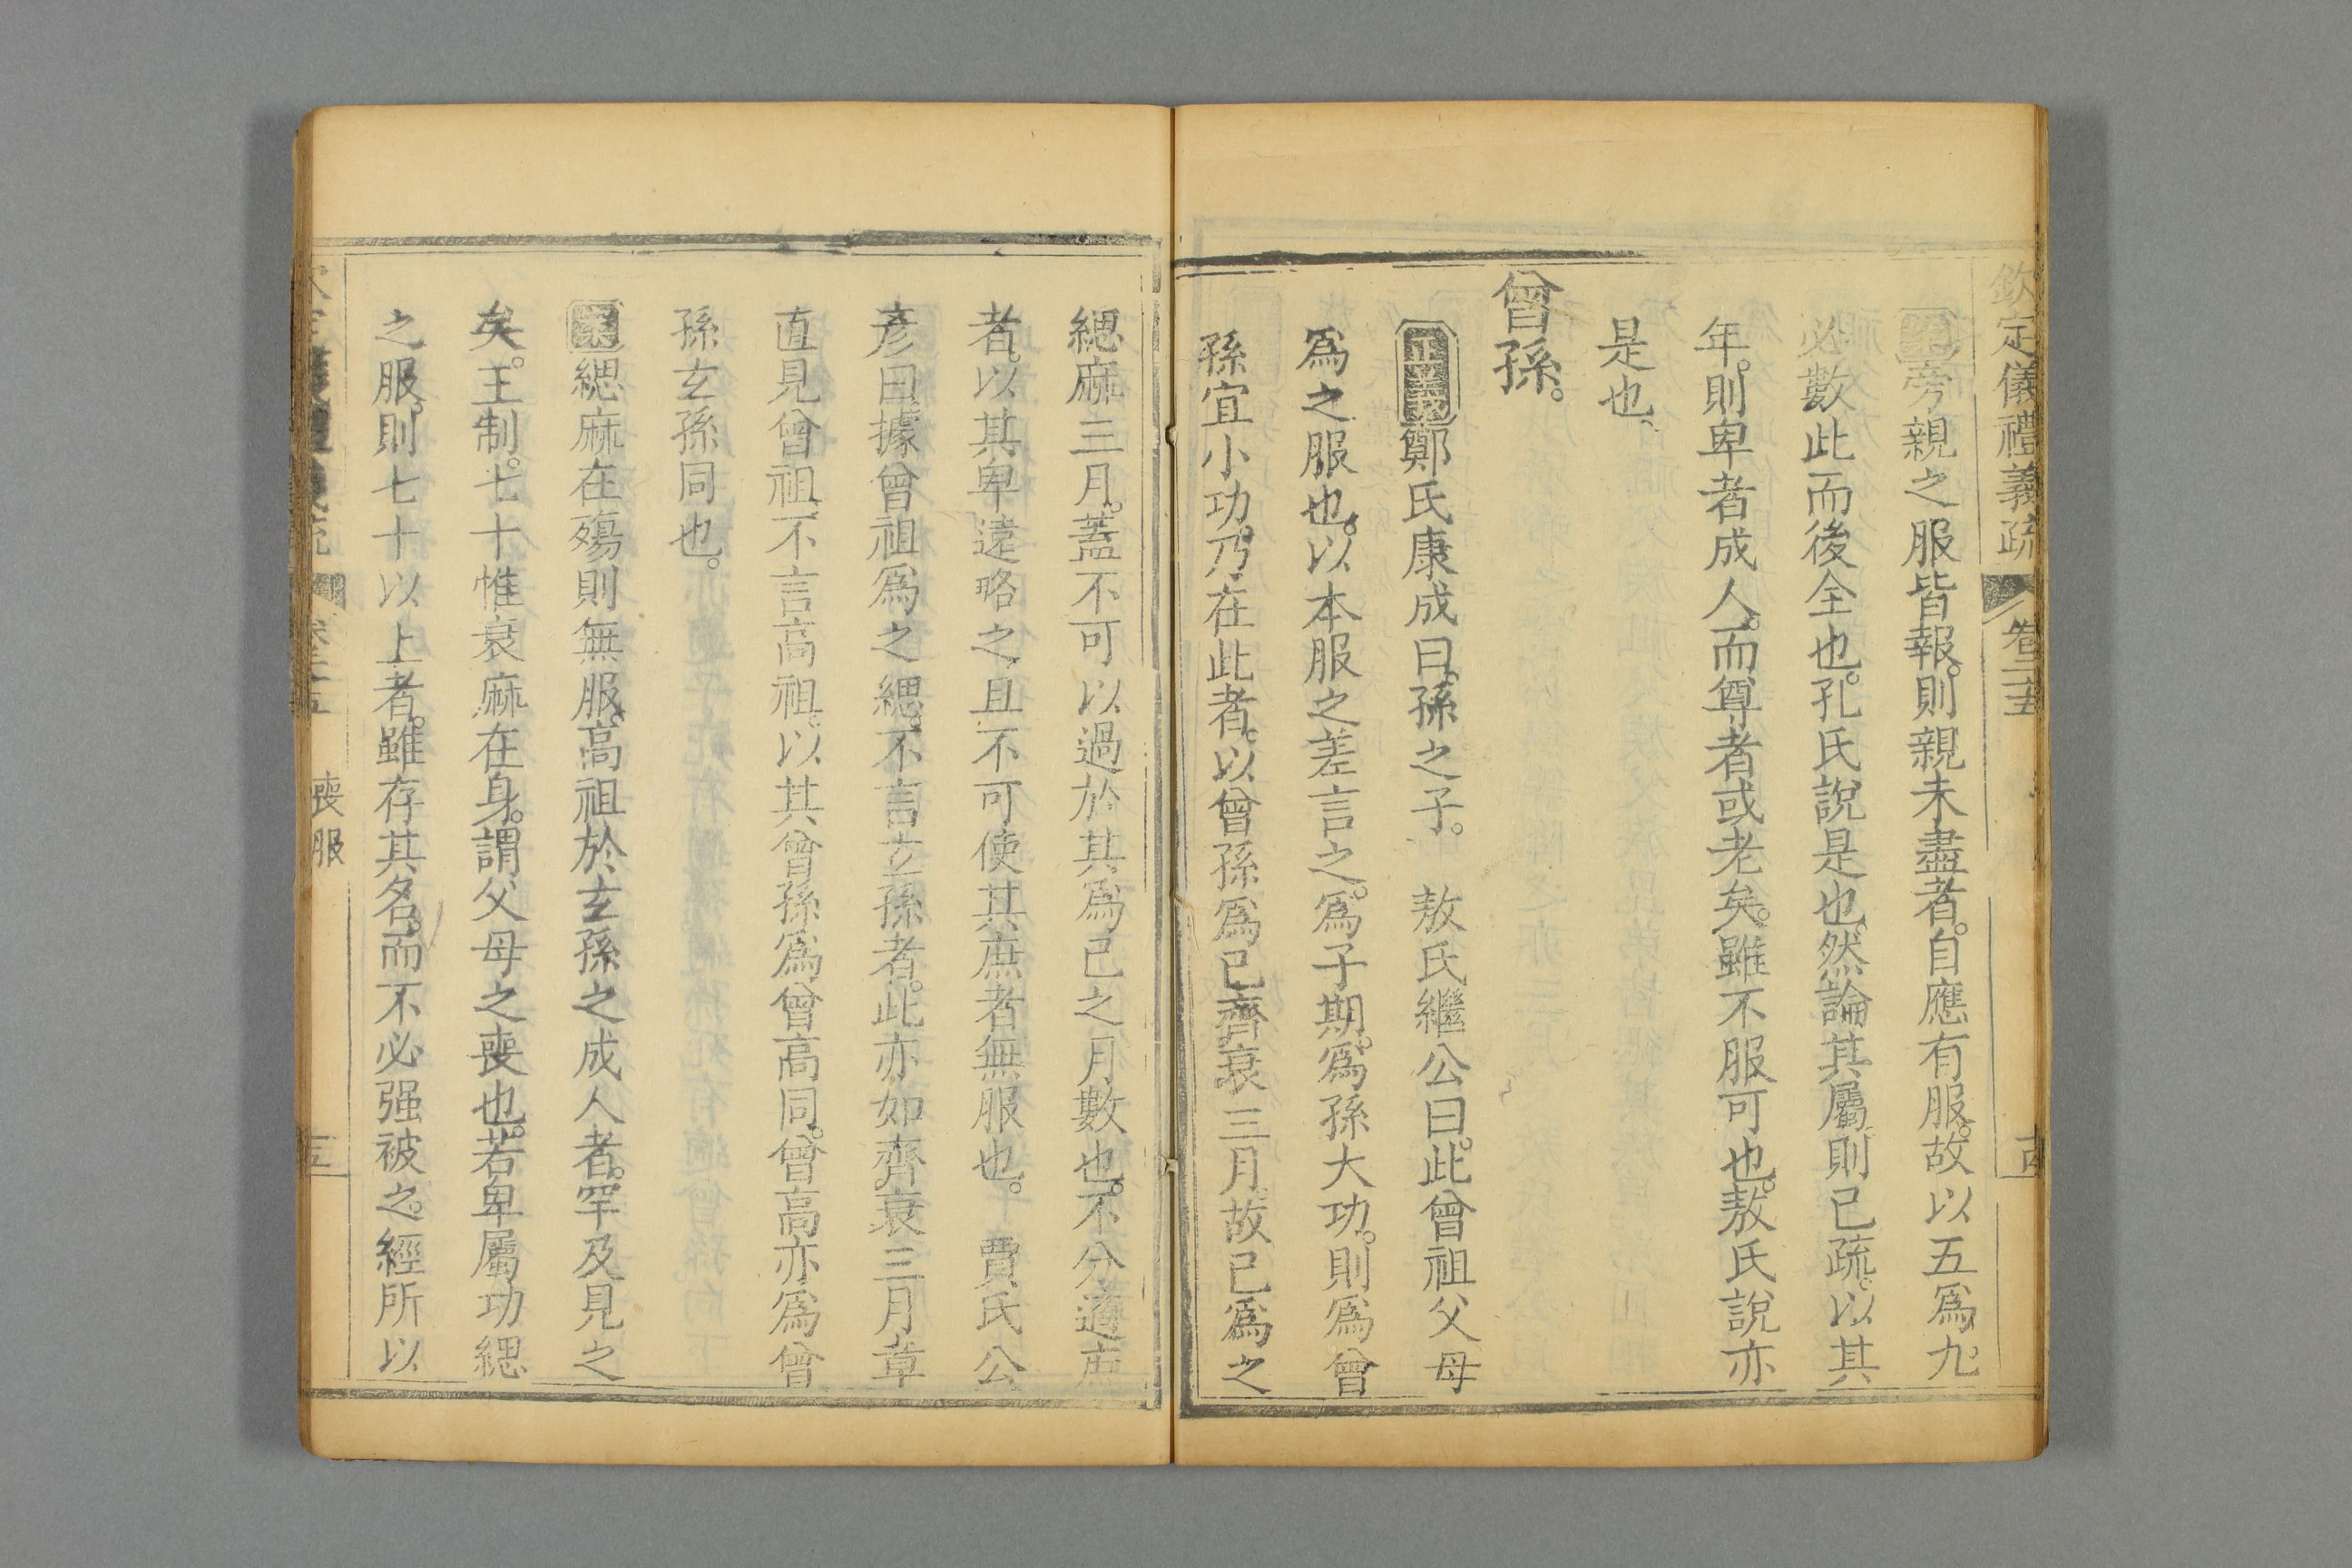 欽定儀禮義疏 卷二十五
案旁親之服皆報。則親未盡者。自應有服。故以五爲九
必數此而後全也。孔氏說是也。然論其屬則已疏。以其
年。則卑者成人。而尊者或老矣。雖不服可也。敖氏說亦
是也。
曾孫。
正義鄭氏康成曰。孫之子。 敖氏繼公曰。此曾祖父母
爲之服也。以本服之差言之。爲子期。爲孫大功。則爲曾
孫宜小功。乃在此者。以曾孫爲已齊衰三月。故已爲之
緦麻三月。蓋不可以過於其爲已之月數也。不分適庶
者。以其卑遠略之。且不可使其庶者無服也。 賈氏公
彥曰據曾祖爲之緦。不言玄孫者。此亦如齊衰三月章
直見曾祖。不言高祖。以其曾孫爲曾高同。曾高亦爲曾
孫玄孫同也。
案緦麻在殤則無服。高祖於玄孫之成人者。罕及見之
矣。王制。七十惟衰麻在身。謂父母之喪也。若卑屬功緦
之服。則七十以上者。雖存其名。而不必强被之。經所以
喪服